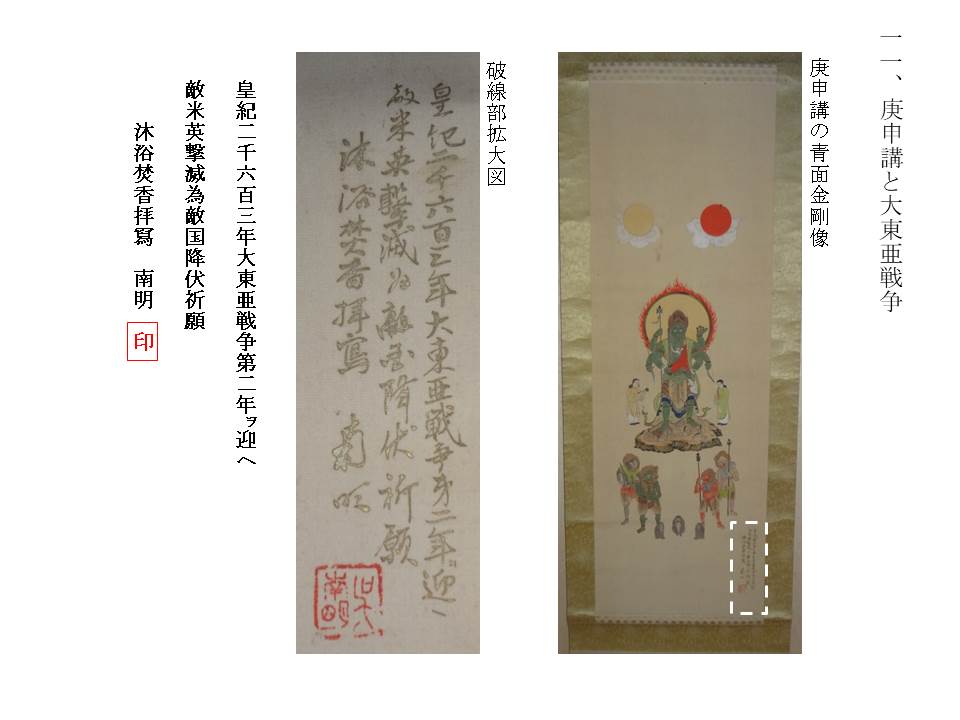 一一、庚申講と大東亜戦争
庚申講の青面金剛像
破線部拡大図
皇紀二千六百三年大東亜戦争第二年ヲ迎へ
敵米英撃滅為敵国降伏祈願
沐浴焚香拝寫 南明
南明
皇紀二千六百三年大東亜戦争第二年ヲ迎へ
敵米英撃滅為敵国降伏祈願
沐浴焚香拝寫 南明 印